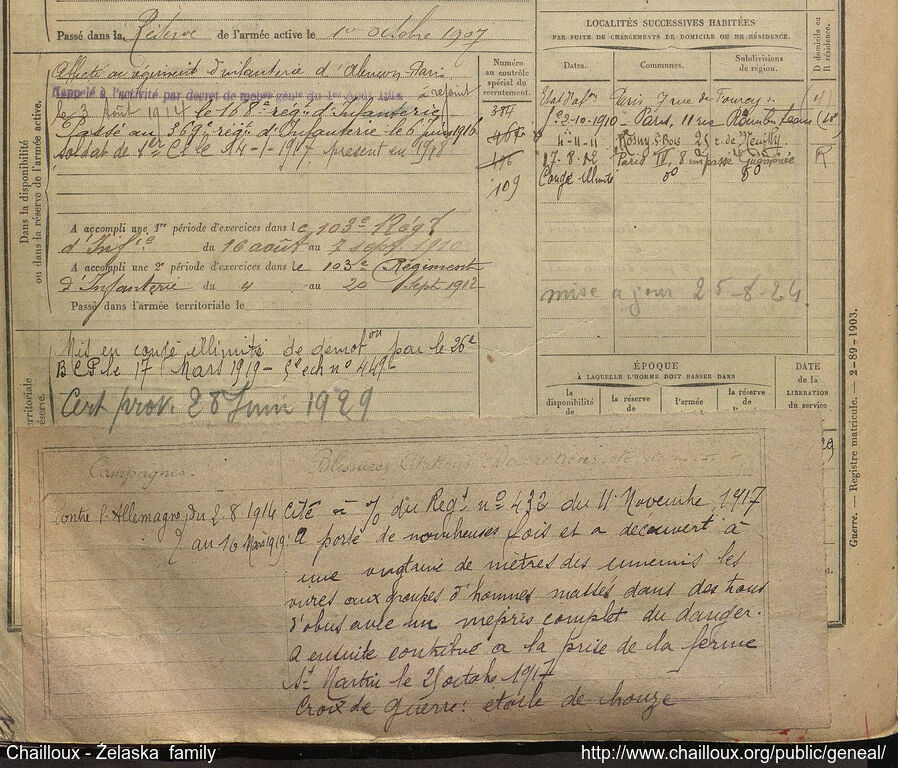 Passé dans la Réserve de l'armée active le 1er octobre 1907
Affecté au régiment d'infanterie d'Alençon-Paris
Rappelé à l'activité par décret de mobon génle du 1er Août 1914 a rejoint
le 3 Août 1914 le 168e régt d'Infanterie
Passé au 369e régt d'Infanterie le 6 juin 1916
soldat de 1ère Cl. le 14-1-1917 présent en 1918
Dans la disponibilité
ou dans la réserve de l'armée active.
A accompli une 1re période d'exercices dans le 103e Régt
d'Infie du 16 août au 7 sept 1910
A accompli une 2e période d'exercices dans le 103e Régiment
d'Infanterie du 4 au 20 Sept 1912
Passé dans l'armée territoriale le
Mis en congé illimité de démobon par le 26e
BCP le 17 Mars 1919 - 5e ech no 449
Cert prov. 28 Juin 1929
territoriale
réserve.
Numéro
au contrôle
spécial du
recrutement.
109
LOCALITÉS SUCCESSIVES HABITÉES
PAR SUITE DE CHANGEMENTS DE DOMICILE OU DE RÉSIDENCE.
Dates. Communes. Subdivisions de région. D domicile ou R résidence.
Paris 7 rue de Fourcy
2-10-1910 - Paris, 11 rue Rambuteau
4-11-11 Rosny s/Bois 25 r. de Neuilly
17-8-12 Paris IV, 8 impasse Guéménée R
Congé illimité do do
mise a jour 25-8-24
ÉPOQUE
À LAQUELLE L'HOMME DOIT PASSER DANS
la disponibilité la réserve de l'armée la réserve
DATE
de la
LIBÉRATION
du service
29
Guerre. — Registre matricule. — 2-89-1903.
Campagnes. Blessures, Citations, Décorations
Contre l'Allemagne du 2 8 1914
au 16 Mars 1919
Cité à l'o/ du Régt no 432 du 11 Novembre 1917
A porté de nombreuses fois et a découvert à
une vingtaine de mètres des ennemis les
vivres aux groupes d'hommes massés dans des trous
d'obus avec un mépris complet du danger.
a ensuite contribué a la prise de la ferme
St Martin le 25 octobe 1917
Croix de guerre : étoile de bronze
Chailloux - Żelaska family
http://www.chailloux.org/public/geneal/